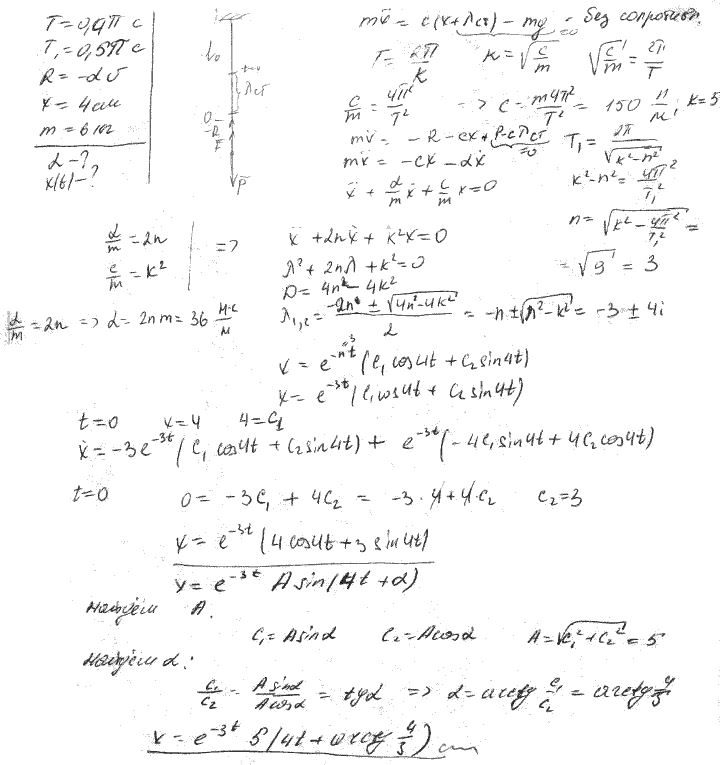 T = 0,4π c
T₁ = 0,5π c
R = -αv
x = 4 см
m = 6 кг
α - ?
x(t) - ?
l₀
λст
0
R
F
P̄
mẍ = c(x + λст) - mg = 0 - без сопротивл.
T = 2π/k k = √(c/m) √(c/m) = 2π/T
c/m = 4π²/T² => c = m4π²/T² = 150 н/м; k = 5
mẍ = -R - cx + P - cλст = 0 T₁ = 2π/√(k² - n²)
mẍ = -cx - αẋ
k² - n² = 4π²/T₁²
ẍ + α/m ẋ + c/m x = 0
n = √(k² - 4π²/T₁²) =
= √9 = 3
α/m = 2n
c/m = k²
=> ẍ + 2nẋ + k²x = 0
λ² + 2nλ + k² = 0
D = 4n² - 4k²
α/m = 2n => α = 2nm = 36 н·с/м
λ₁,₂ = (-2n ± √(4n² - 4k²))/2 = -n ± √(n² - k²) = -3 ± 4i
x = e^(-nt) (C₁ cos4t + C₂ sin4t)
x = e^(-3t) (C₁ cos4t + C₂ sin4t)
t = 0 x = 4 4 = C₁
ẋ = -3e^(-3t) (C₁ cos4t + C₂ sin4t) + e^(-3t) (-4C₁ sin4t + 4C₂ cos4t)
t = 0 0 = -3C₁ + 4C₂ = -3·4 + 4·C₂ C₂ = 3
x = e^(-3t) (4 cos4t + 3 sin4t)
x = e^(-3t) A sin(4t + α)
Найдем A.
C₁ = A sinα C₂ = A cosα A = √(C₁² + C₂²) = 5
Найдем α:
C₁/C₂ = A sinα/A cosα = tg α => α = arctg C₁/C₂ = arctg 4/3
x = e^(-3t) 5 (4t + arctg 4/3) см